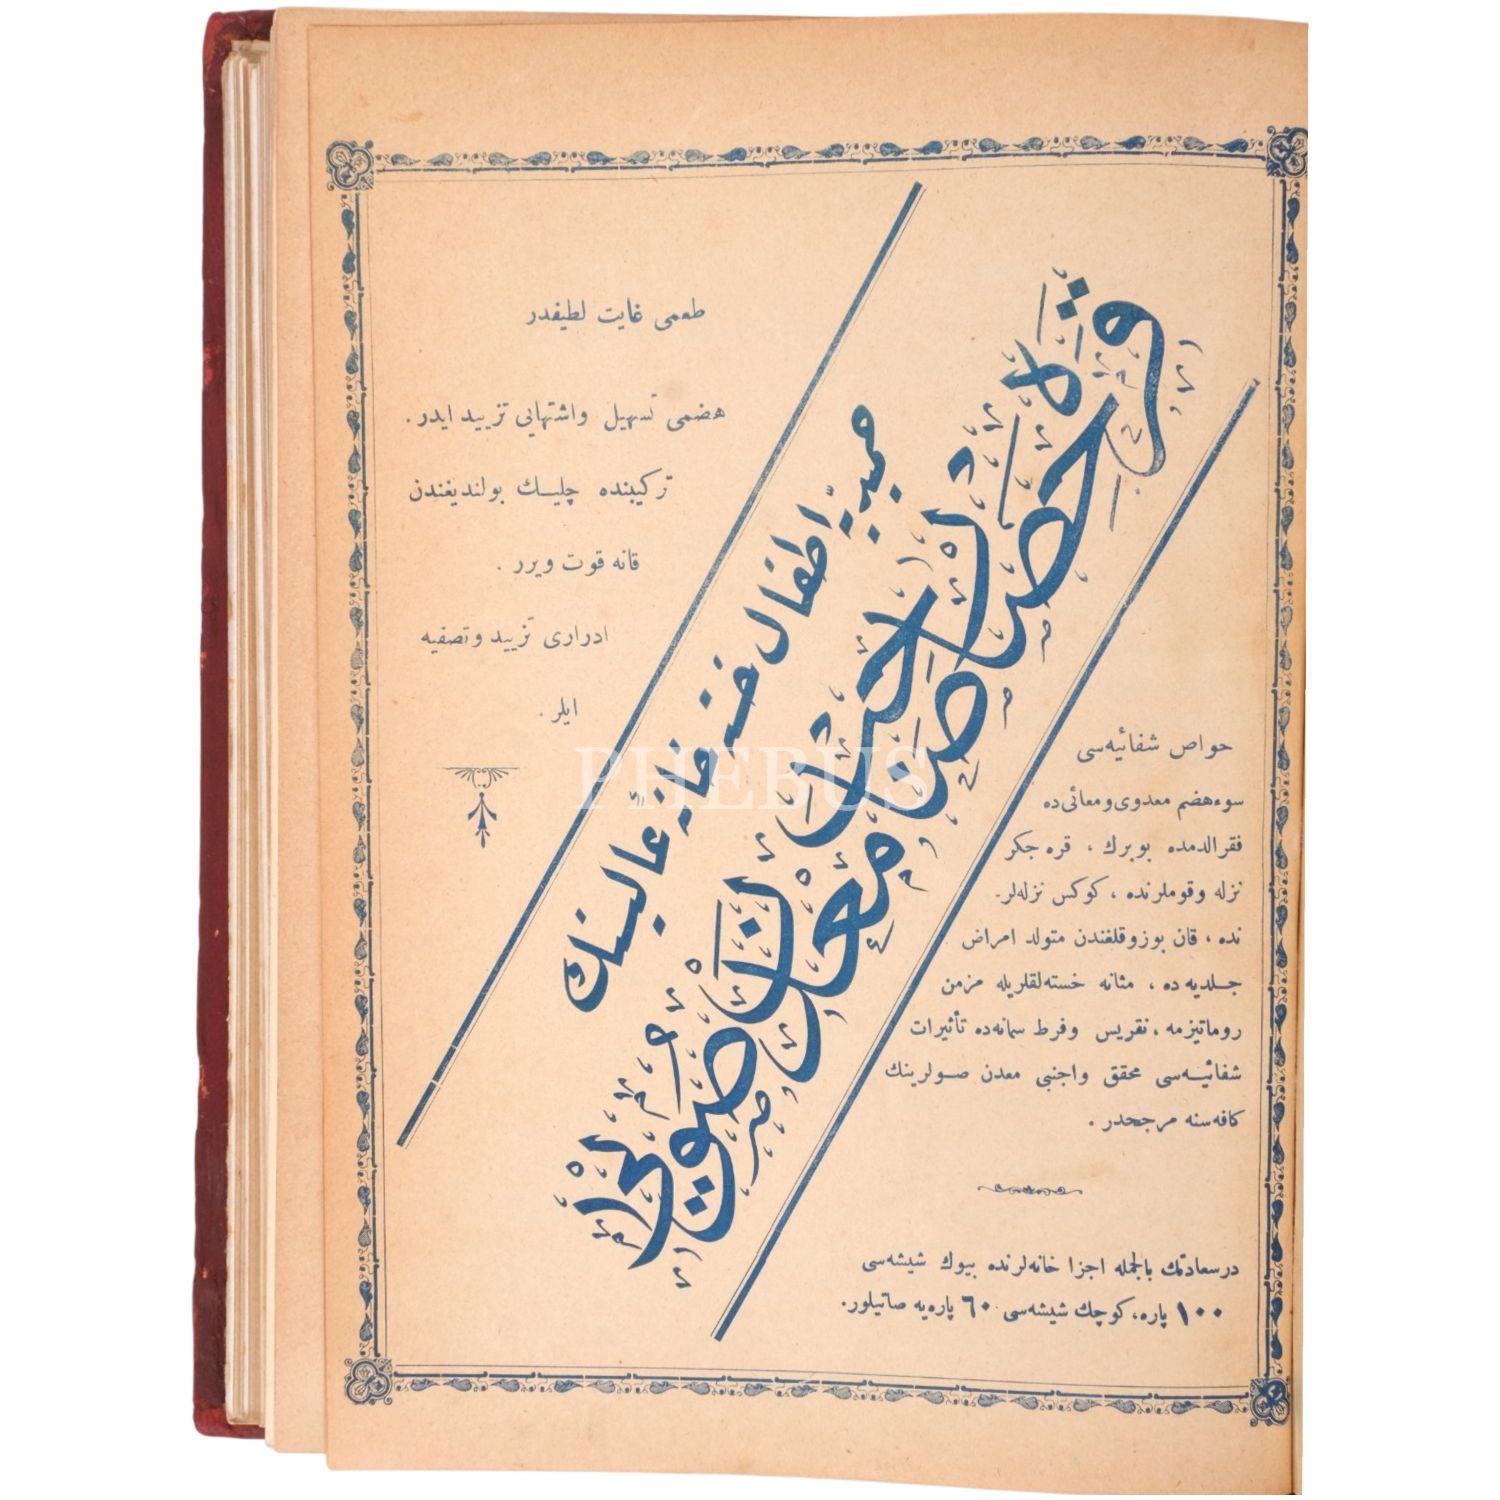 طعمی غایت لطیفدر
هضمی تسهیل واشتهایی تزیید ایدر .
ترکیبنده چلیك بولندیغندن
قانه قوت ویرر .
ادراری تزیید وتصفیه
ایلر .
حمیدیه اطفال خسته خانهٔ عالیسنك
قره حصار معدن صویی
PHEBUS
خواص شفائیه‌سی
سوء هضم معدوی ومعائی ده
فقرالدمده بوبرك ، قره جكر
نزله وقوملرنده ، كوكس نزله‌لر-
نده ، قان بوزوقلغندن متولد امراض
جلدیه ده ، مثانه خسته‌لقلریله مزمن
روماتیزمه ، نقریس وفرط سمانه‌ده تأثیرات
شفائیه‌سی محقق واجنبی معدن صولرینك
كافه‌سنه مرجحدر .
درسعادتك بالجمله اجزا خانه‌لرنده بیوك شیشه‌سی
۱۰۰ پاره، كوچك شیشه‌سی ٦۰ پاره‌یه صاتیلور.